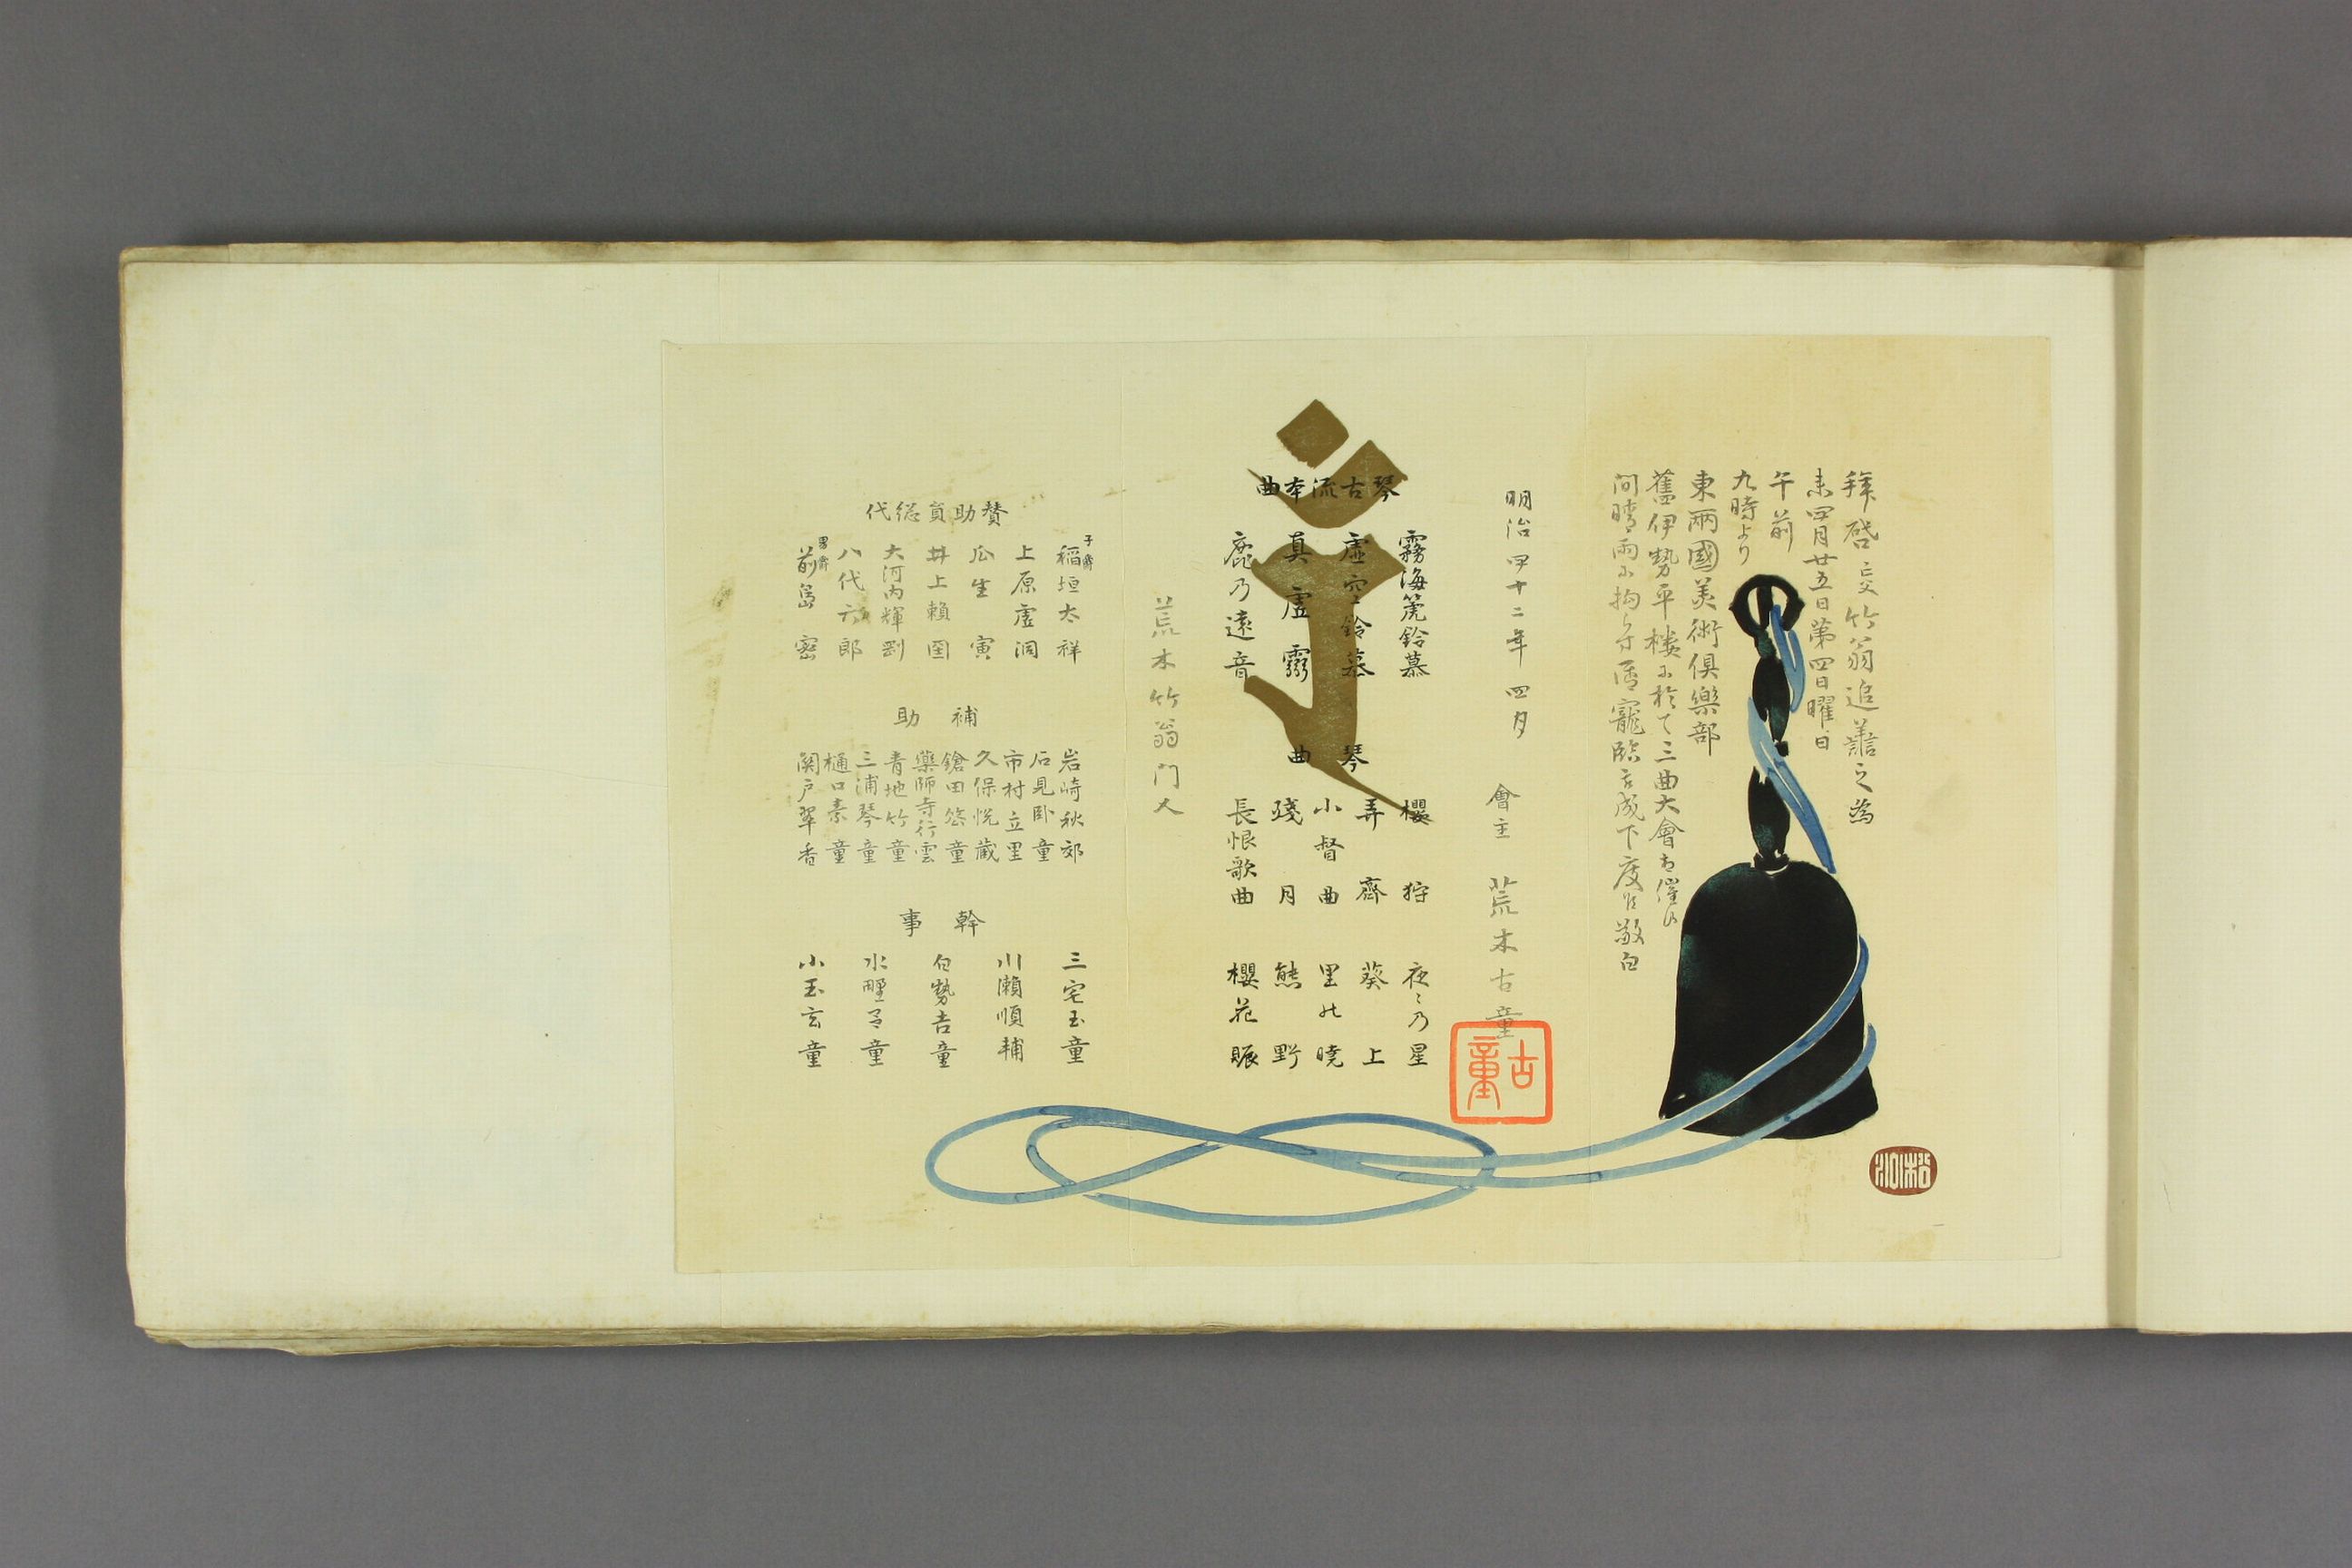 拜啓亡父竹翁追善之為
来四月廿五日第四日曜日
午前
九時より
東兩國美術俱樂部
舊伊勢平楼に於て三曲大會相催候
間晴雨に拘らず
寵臨
成下度
敬白
明治四十二年四月
會主 荒木古童
古童
琴古流本曲
霧海篪鈴慕
虚空鈴慕
真虚霊
鹿乃遠音
琴曲
櫻狩 夜々乃星
弄齋 葵上
小督曲 里の暁
殘月 熊野
長恨歌曲 櫻花賑
荒木竹翁門人
賛助員総代
子爵 稲垣太祥
上原虚洞
瓜生寅
井上頼圀
大河内輝剛
八代六郎
男爵 前島密
補助
岩崎秋郊
石見卧童
市村立里
久保悦蔵
鎗田悠童
藥師寺行雲
青地竹童
三浦琴童
樋口素童
関戸翠香
幹事
三宅玉童
川瀬順輔
白勢吉童
水野呂童
小玉玄童